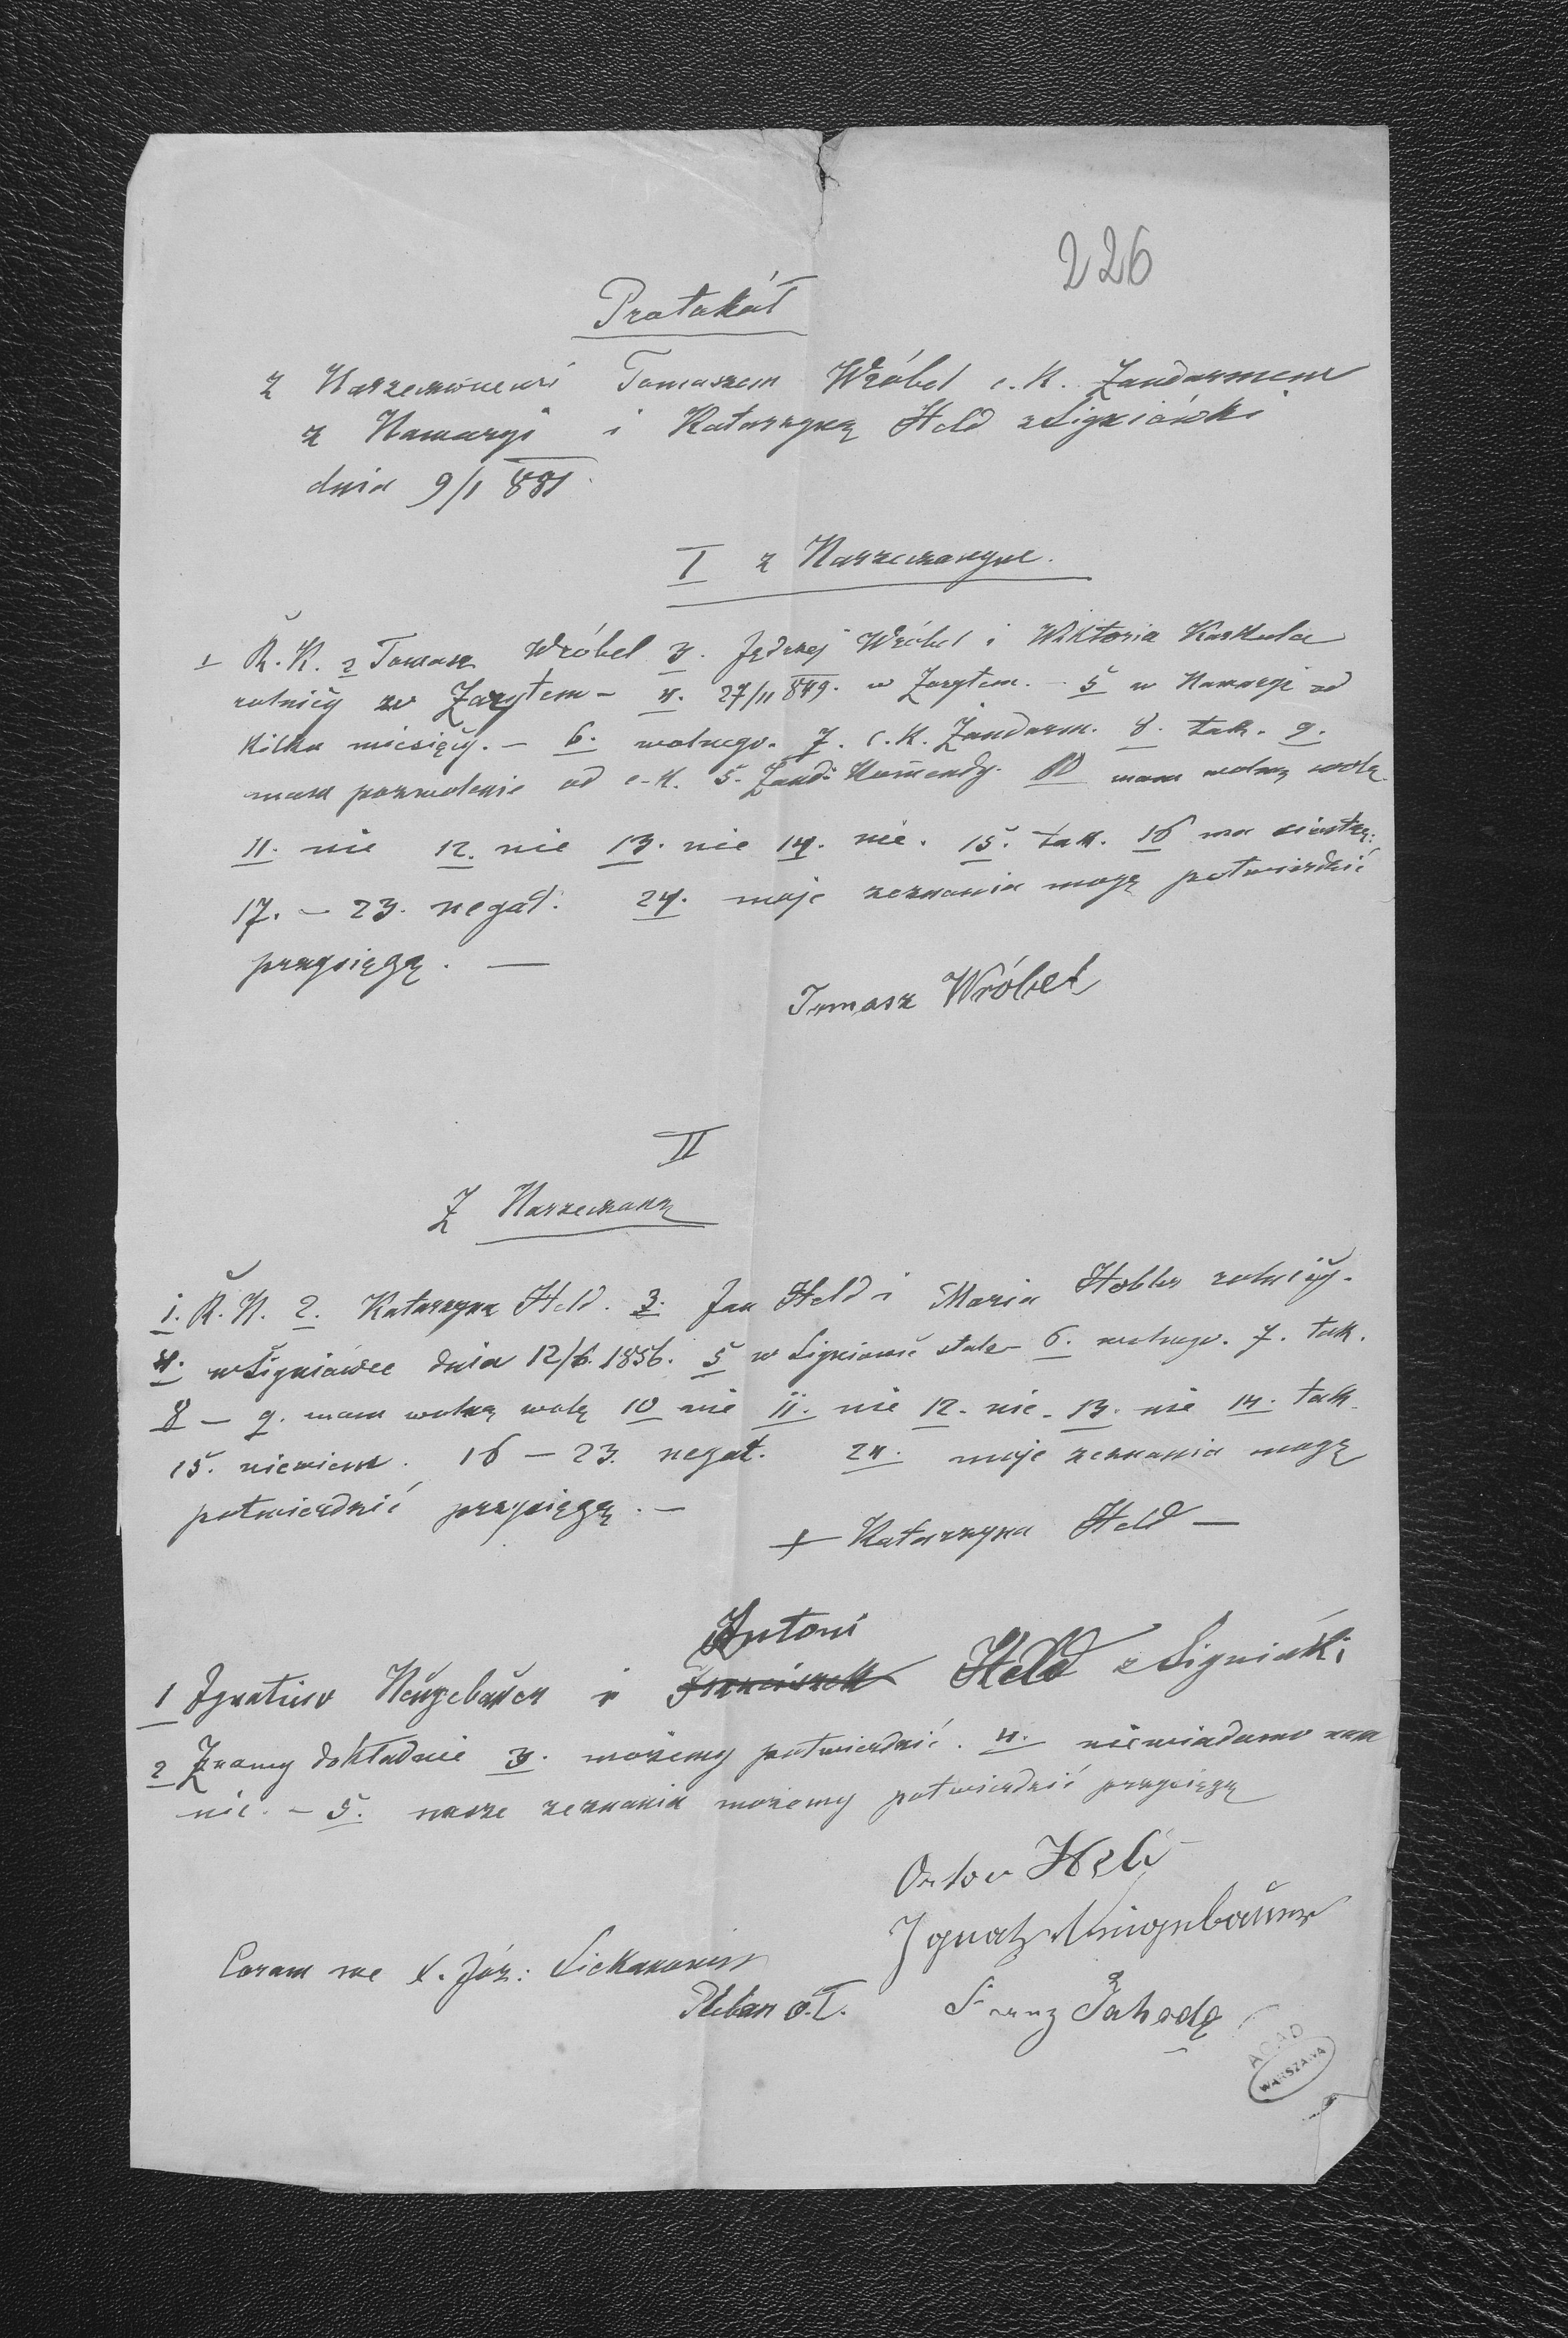 226
Protokół
z Narzeczonemi Tomaszem Wróbel c. k. Żandarmem
z Nawaryi i Katarzyną Held z Ligniówki
dnia 9/1 881
I z Narzeczonym.
1 R. K. 2 Tomasz Wróbel 3. Jędrzej Wróbel i Wiktoria
rolnicy ze Zarytem - 4. 27/11 849. w Zarytem. - 5 w Nawaryi od
kilku miesięcy. - 6. wolnego. 7. c. k. Żandarm. 8. tak. 9.
mam pozwolenie od c. k. 5. Żand. Komendy. 10 mam wolną wolę
11. nie 12. nie 13. nie 14. nie. 15. tak. 16 ma siostrę.
17. - 23. negat. 24. moje zeznania mogę potwierdzić
przysięgą. -
Tomasz Wróbel
II
Z Narzeczoną
1. R. K. 2. Katarzyna Held. 3. Jan Held i Maria rolnicy.
4. w Ligniówce dnia 12/6. 1856. 5 w stale 6. wolnego. 7. tak.
8 - 9. mam wolną wolę 10 nie 11. nie 12. nie. 13. nie 14. tak
15. niewiem. 16 - 23. negat. 24. moje zeznania mogę
potwierdzić przysięgą. -
+ Katarzyna Held -
Antoni
1 Ignatius Neugebauer i Franciszek Held z
2 Znamy dokładnie 3. możemy potwierdzić. 4. niewiadomo nam
nic. - 5. nasze zeznania możemy potwierdzić przysięgą
Held
Ignatz
Coram me X. Józ:
Pleban o. ł.
Franz
AGAD
WARSZAWA